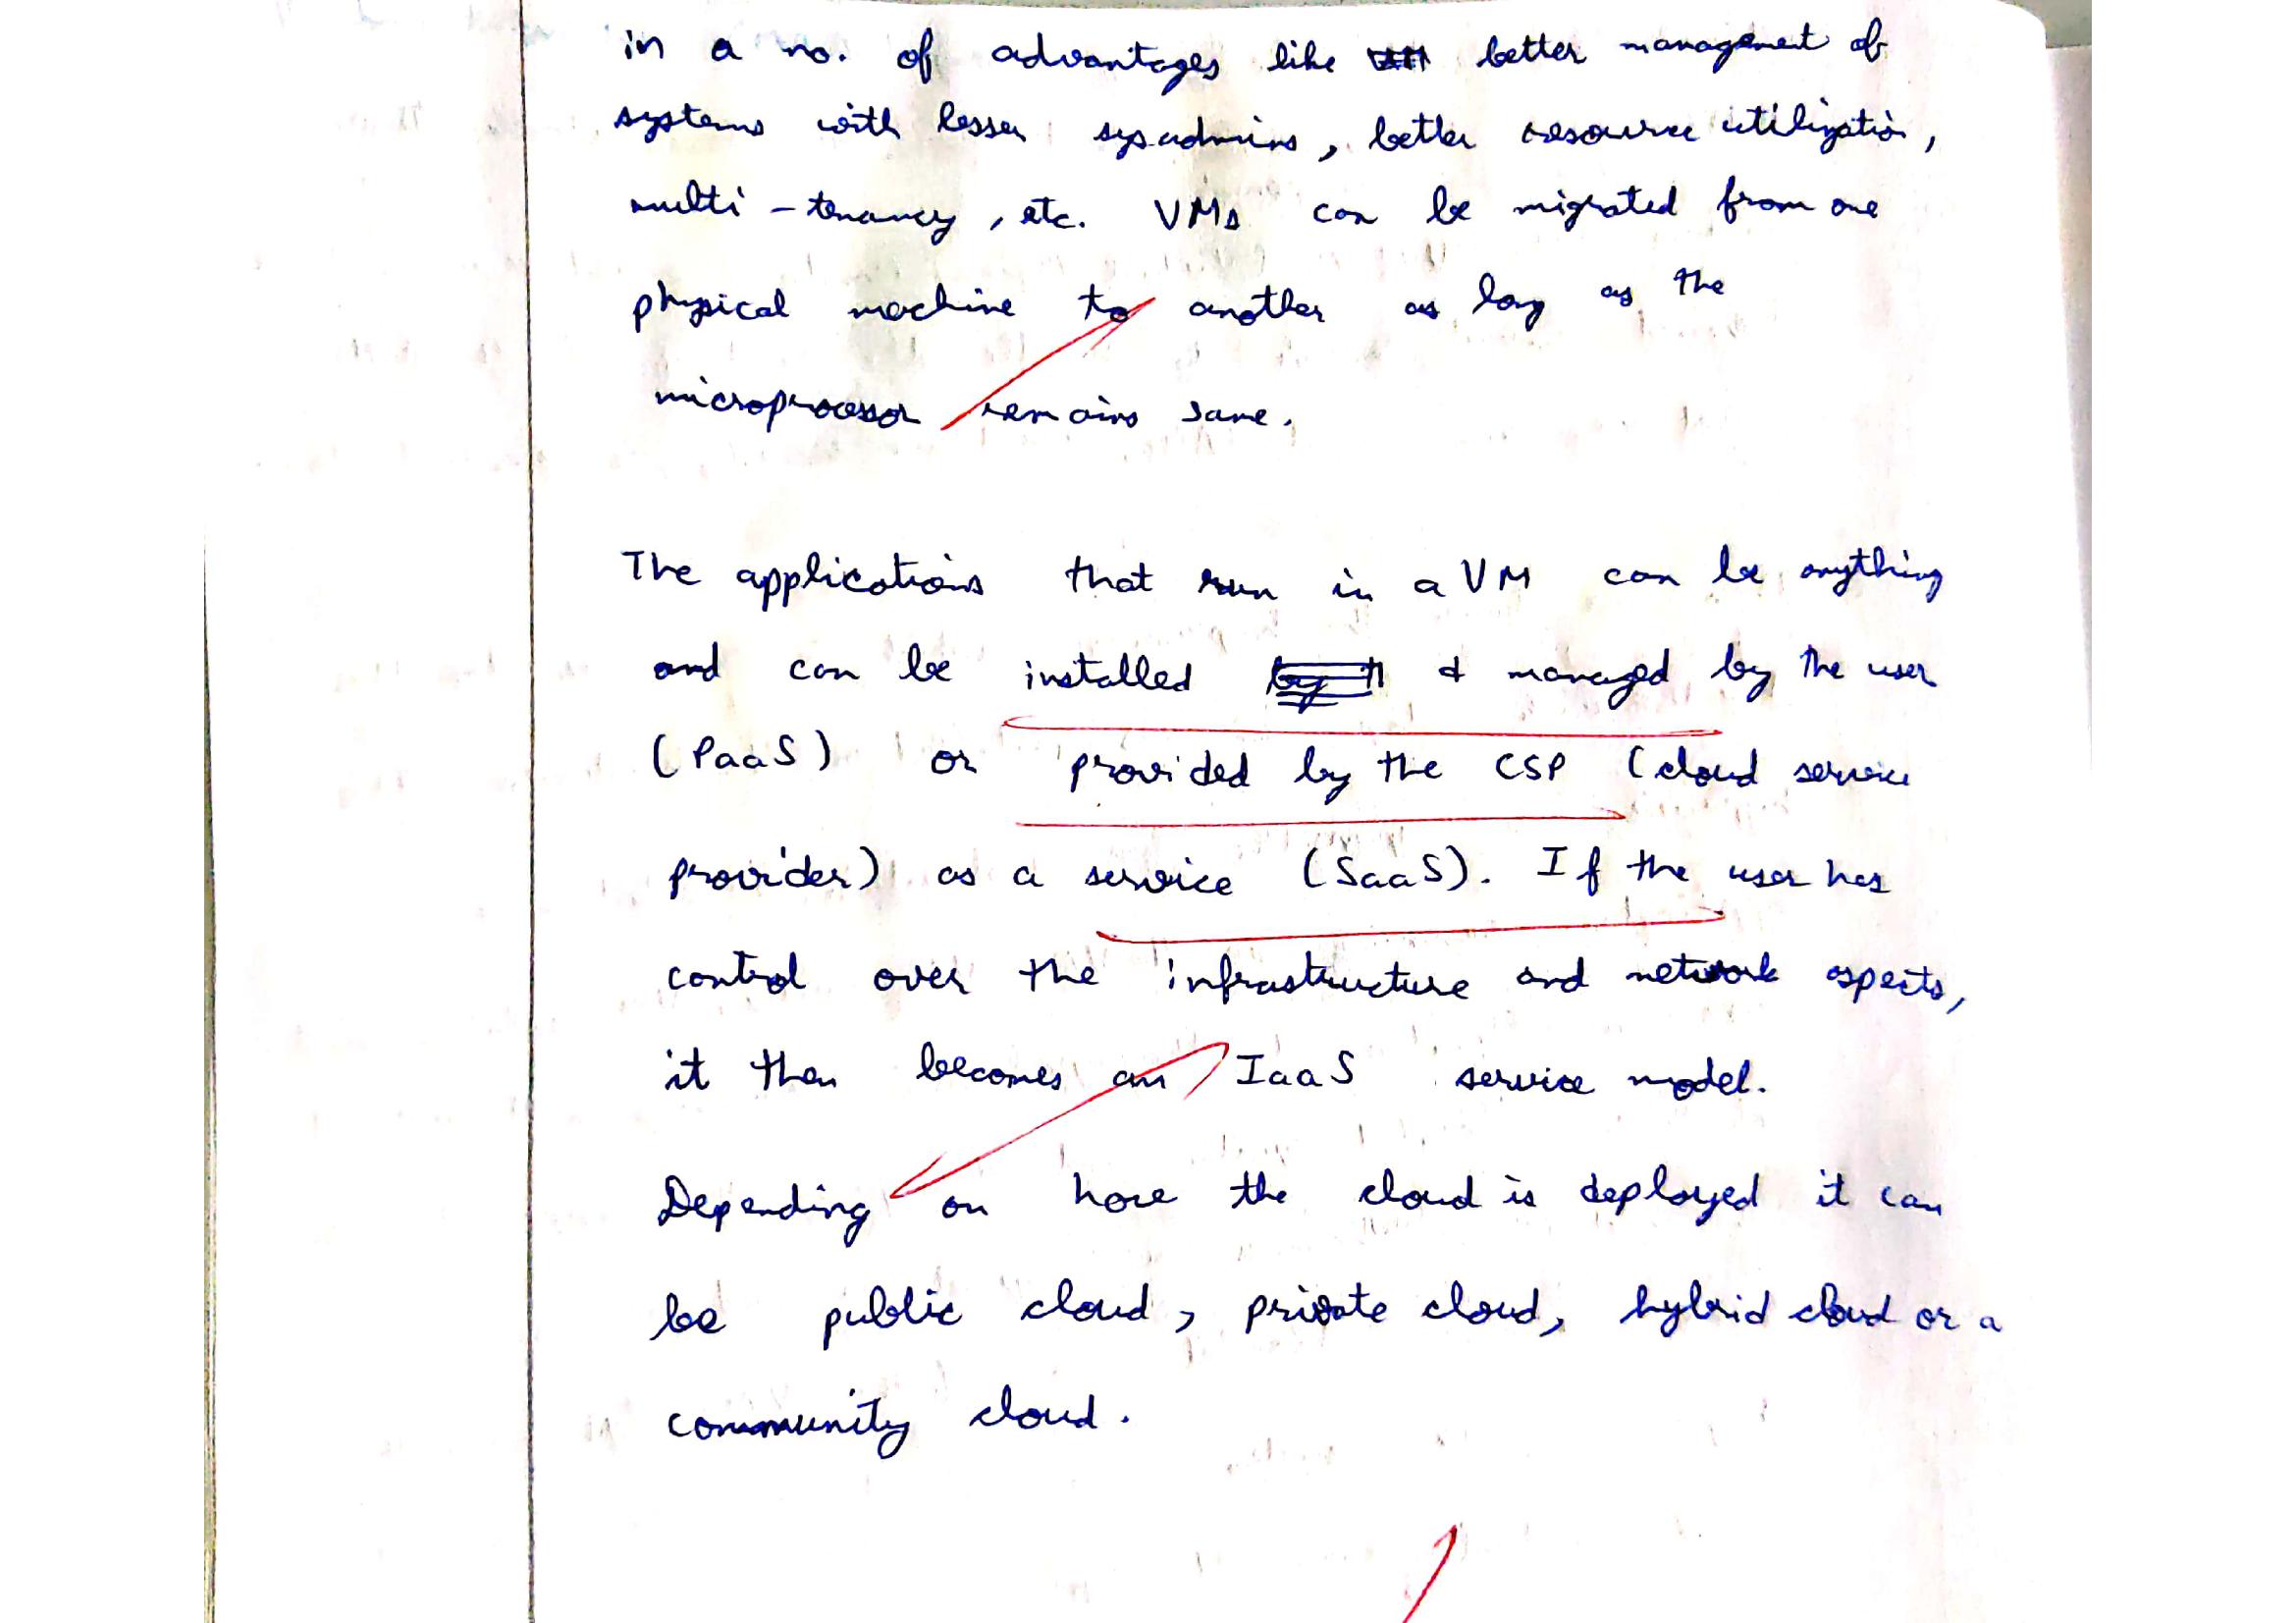 in a no. of advantages like better management of
systems with lesser sysadmins, better resource utilization,
multi-tenancy, etc. VMs can be migrated from one
physical machine to another as long as the
microprocessor remains same.
The applications that run in a VM can be anything
and can be installed & managed by the user
(PaaS) or provided by the CSP (cloud service
provider) as a service (SaaS). If the user has
control over the infrastructure and network aspects,
it then becomes an IaaS service model.
Depending on how the cloud is deployed it can
be public cloud, private cloud, hybrid cloud or a
community cloud.